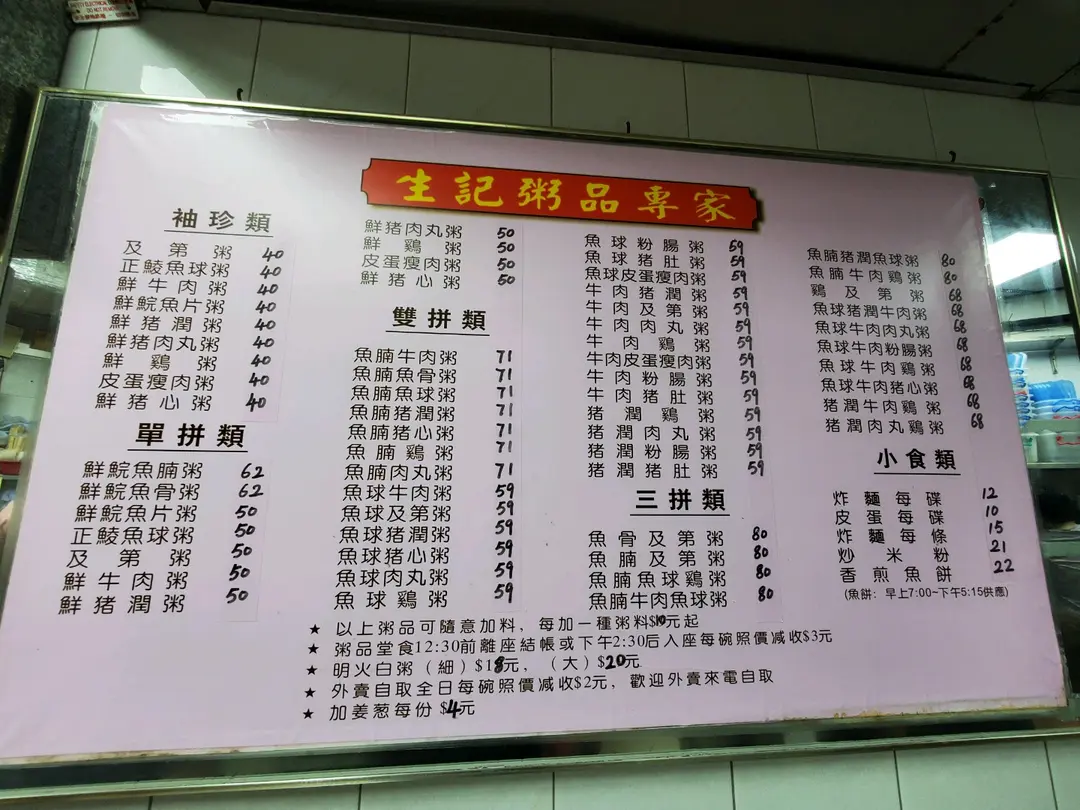 生記粥品專家
袖珍類
及第粥 40
正鯪魚球粥 40
鮮牛肉粥 40
鮮鯇魚片粥 40
鮮猪潤粥 40
鮮猪肉丸粥 40
鮮鷄粥 40
皮蛋瘦肉粥 40
鮮猪心粥 40
單拼類
鮮鯇魚腩粥 62
鮮鯇魚骨粥 62
鮮鯇魚片粥 50
正鯪魚球粥 50
及第粥 50
鮮牛肉粥 50
鮮猪潤粥 50
鮮猪肉丸粥 50
鮮鷄粥 50
皮蛋瘦肉粥 50
鮮猪心粥 50
雙拼類
魚腩牛肉粥 71
魚腩魚骨粥 71
魚腩魚球粥 71
魚腩猪潤粥 71
魚腩猪心粥 71
魚腩鷄粥 71
魚腩肉丸粥 71
魚球牛肉粥 59
魚球及第粥 59
魚球猪潤粥 59
魚球猪心粥 59
魚球肉丸粥 59
魚球鷄粥 59
魚球粉腸粥 59
魚球猪肚粥 59
魚球皮蛋瘦肉粥 59
牛肉猪潤粥 59
牛肉及第粥 59
牛肉肉丸粥 59
牛肉鷄粥 59
牛肉皮蛋瘦肉粥 59
牛肉粉腸粥 59
牛肉猪肚粥 59
猪潤鷄粥 59
猪潤肉丸粥 59
猪潤粉腸粥 59
猪潤猪肚粥 59
三拼類
魚骨及第粥 80
魚腩及第粥 80
魚腩魚球鷄粥 80
魚腩牛肉魚球粥 80
魚腩猪潤魚球粥 80
魚腩牛肉鷄粥 80
鷄及第粥 68
魚球猪潤牛肉粥 68
魚球牛肉肉丸粥 68
魚球牛肉粉腸粥 68
魚球牛肉鷄粥 68
魚球牛肉猪心粥 68
猪潤牛肉鷄粥 68
猪潤肉丸鷄粥 68
小食類
炸麵每碟 12
皮蛋每碟 10
炸麵每條 15
炒米粉 21
香煎魚餅 22
(魚餅：早上7:00~下午5:15供應)
★ 以上粥品可隨意加料，每加一種粥料$10元起
★ 粥品堂食12:30前離座結帳或下午2:30后入座每碗照價減收$3元
★ 明火白粥（細）$18元，（大）$20元
★ 外賣自取全日每碗照價減收$2元，歡迎外賣來電自取
★ 加姜葱每份 $4元